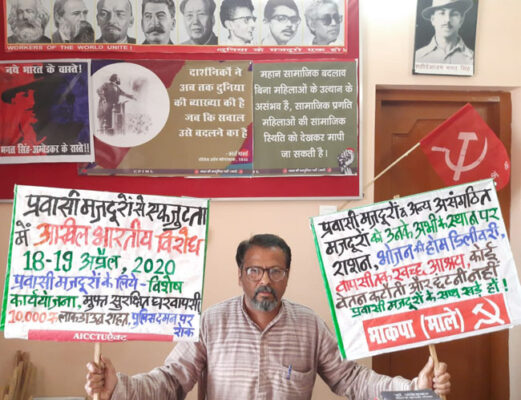 WORKERS OF THE WORLD UNITE!
दुनिया के मजदूरों एक हों!
नये भारत के वास्ते!
भगत सिंह-अम्बेडकर के रास्ते!!
दार्शनिकों ने
अब तक दुनिया
की व्याख्या की है
जब कि सवाल
उसे बदलने का है
महान सामाजिक बदलाव
बिना महिलाओं के उत्थान के
असंभव है, सामाजिक प्रगति
महिलाओं की सामाजिक
स्थिति को देखकर मापी
जा सकती है।
CPIML
प्रवासी मजदूरों से एकजुटता
में अखिल भारतीय विरोध
18-19 अप्रैल, 2020
प्रवासी मजदूरों के लिये - विशेष
कार्ययोजना, मुफ्त सुरक्षित घरवापसी
10,000रु लाकडाउन राहत, पुलिस दमन पर
रोक
AICCTU ऐक्टू
प्रवासी मजदूरों व अन्य असंगठित
मजदूरों को उनके अभी के स्थान पर
राशन, भोजन की होम डिलीवरी,
वापसी तक स्वच्छ आश्रय, कोई
वेतन कटौती और छंटनी नहीं
प्रवासी मजदूरों के साथ खड़े हों!
भाकपा (माले)